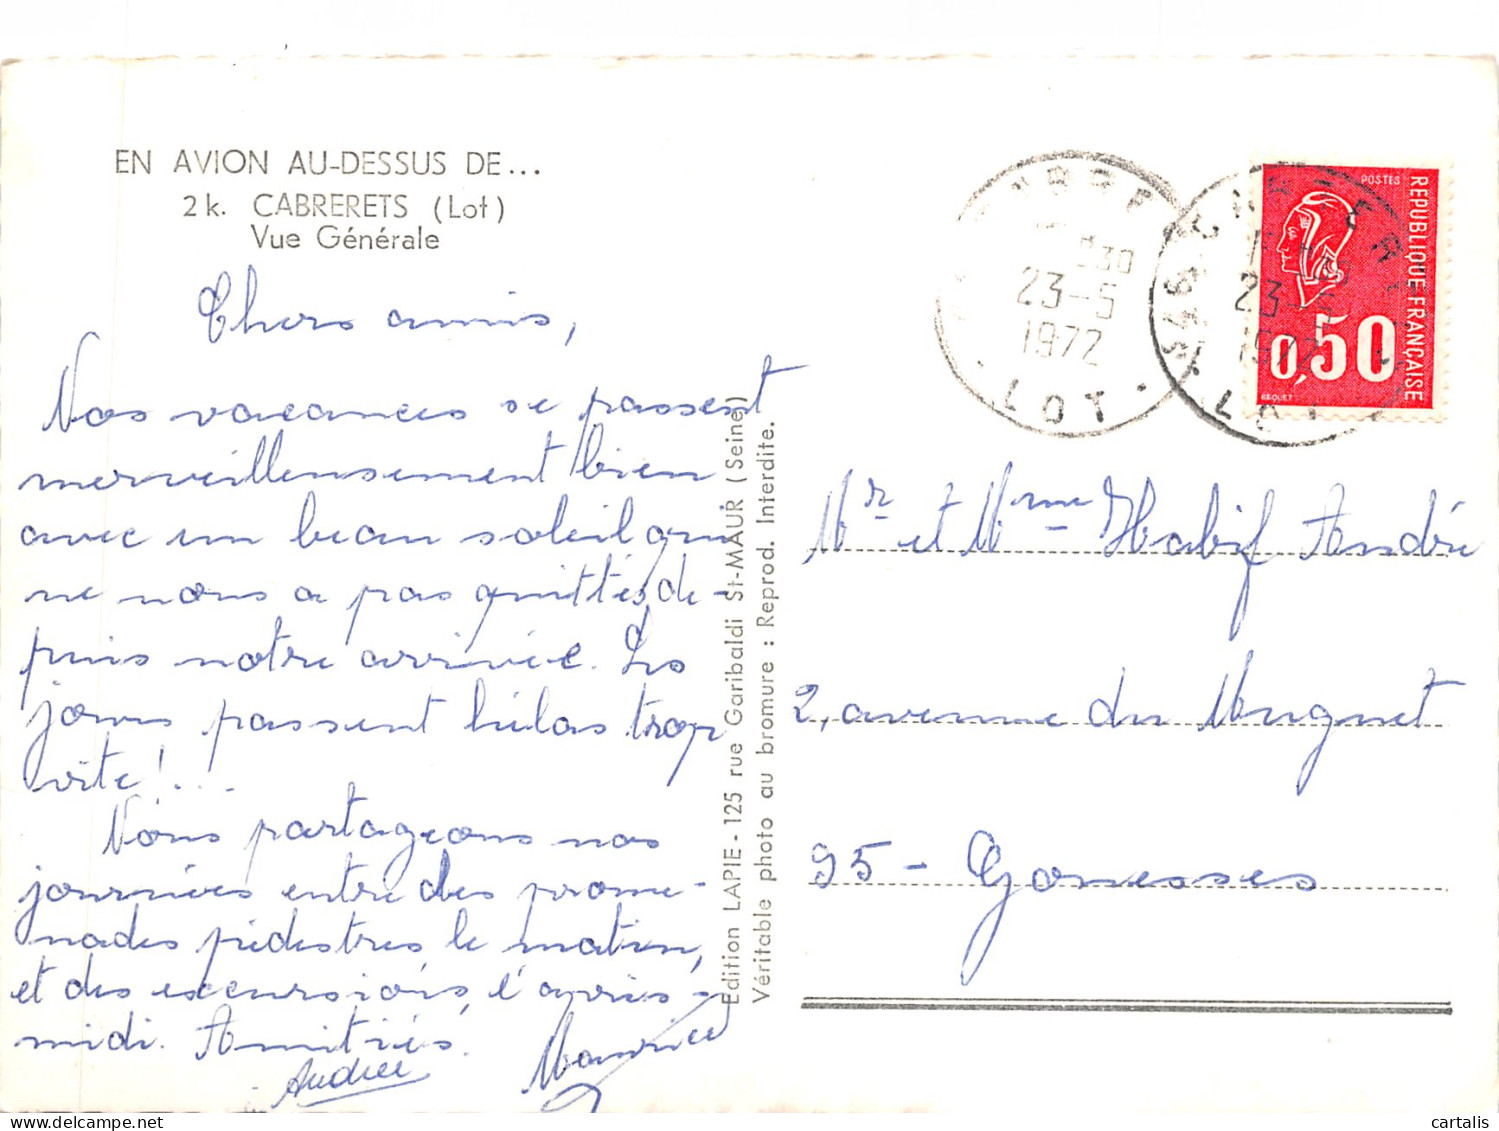 EN AVION AU-DESSUS DE...
2 k. CABRERETS (Lot)
Vue Générale
Chers amis,
Nos vacances se passent
merveilleusement bien
avec un beau soleil qui
ne nous a pas quittés de-
puis notre arrivée. Les
jours passent hélas trop
vite !...
Nous partageons nos
journées entre des prome-
nades pédestres le matin,
et des excursions, l'après-
midi. Amitiés.
Andrée
Maurice
Edition LAPIE - 125 rue Garibaldi St-MAUR (Seine)
Véritable photo au bromure : Reprod. Interdite.
23-5
1972
LOT
23-5
1972
LOT
POSTES
REPUBLIQUE FRANÇAISE
0,50
BEQUET
Mr et Mme Habif André
2, avenue du Muguet
95 - Gonesses
cartalis